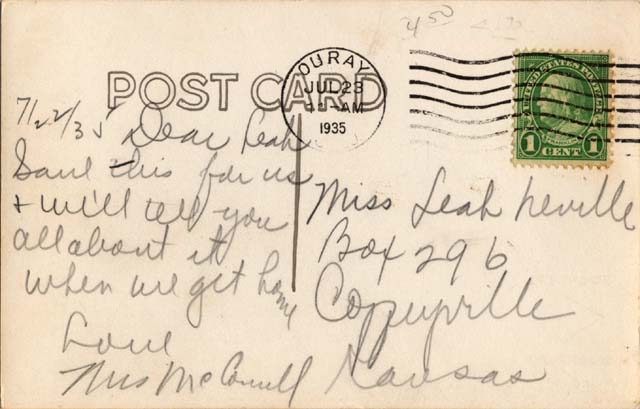 4 50
POST CARD
OURAY
JUL 23
11-AM
1935
UNITED STATES POSTAGE
1 CENT 1
7/22/35 Dear Leah
Save this for us
+ will tell you
all about it
when we get home
Love
Mrs McConnell
Miss Leah Neville
Box 296
Kansas